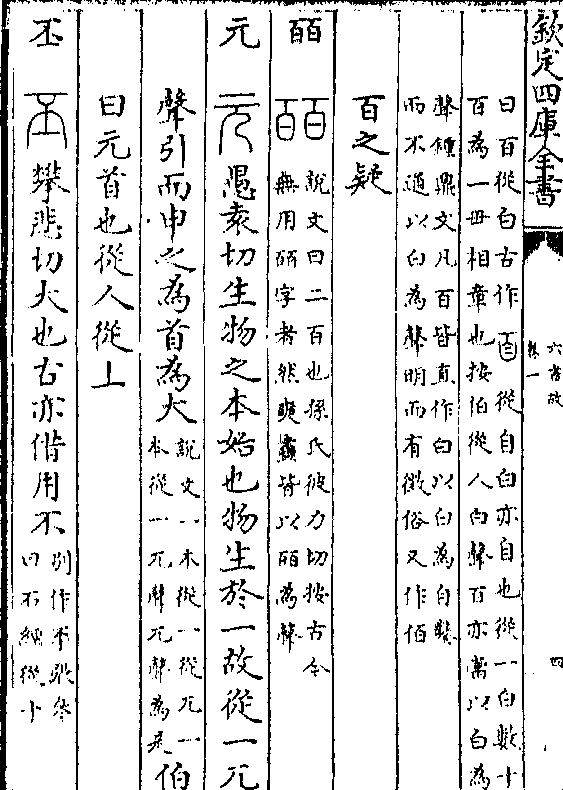 欽定四庫全書
六書故
卷一
四
曰百從白古作𦣻從自白亦自也從一白數十
百為一毌相章也按伯從人白聲百亦當以白為
聲鍾鼎文凡百皆直作白以白為自聲
而不通以白為聲明而有徵俗又作佰
百之疑
皕 皕 說文曰二百也孫氏彼力切按古今
無用皕字者然奭衋皆以皕為聲
元 元 愚袁切生物之本始也物生於一故從一兀
聲引而申之為首為大 說文一本從一從兀一
本從一兀聲兀聲為是 伯
曰元首也從人從上
丕 丕 攀悲切大也古亦借用不 別作㔻
曰不 從十